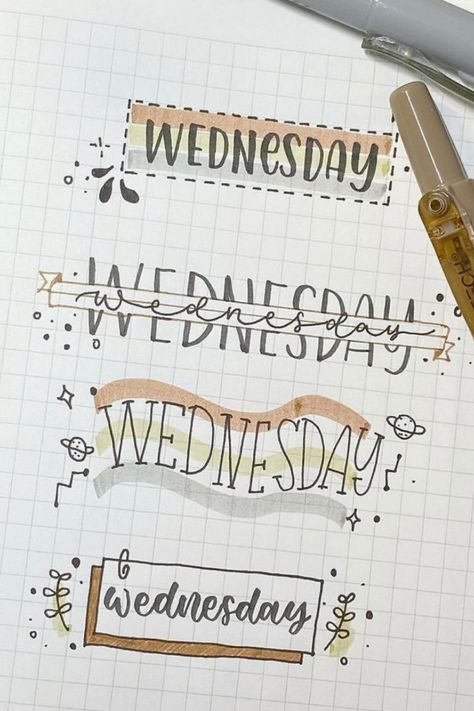 WEDNeSDAY
WEDNESDAY
wednesday
WEDNESDAY
wednesday